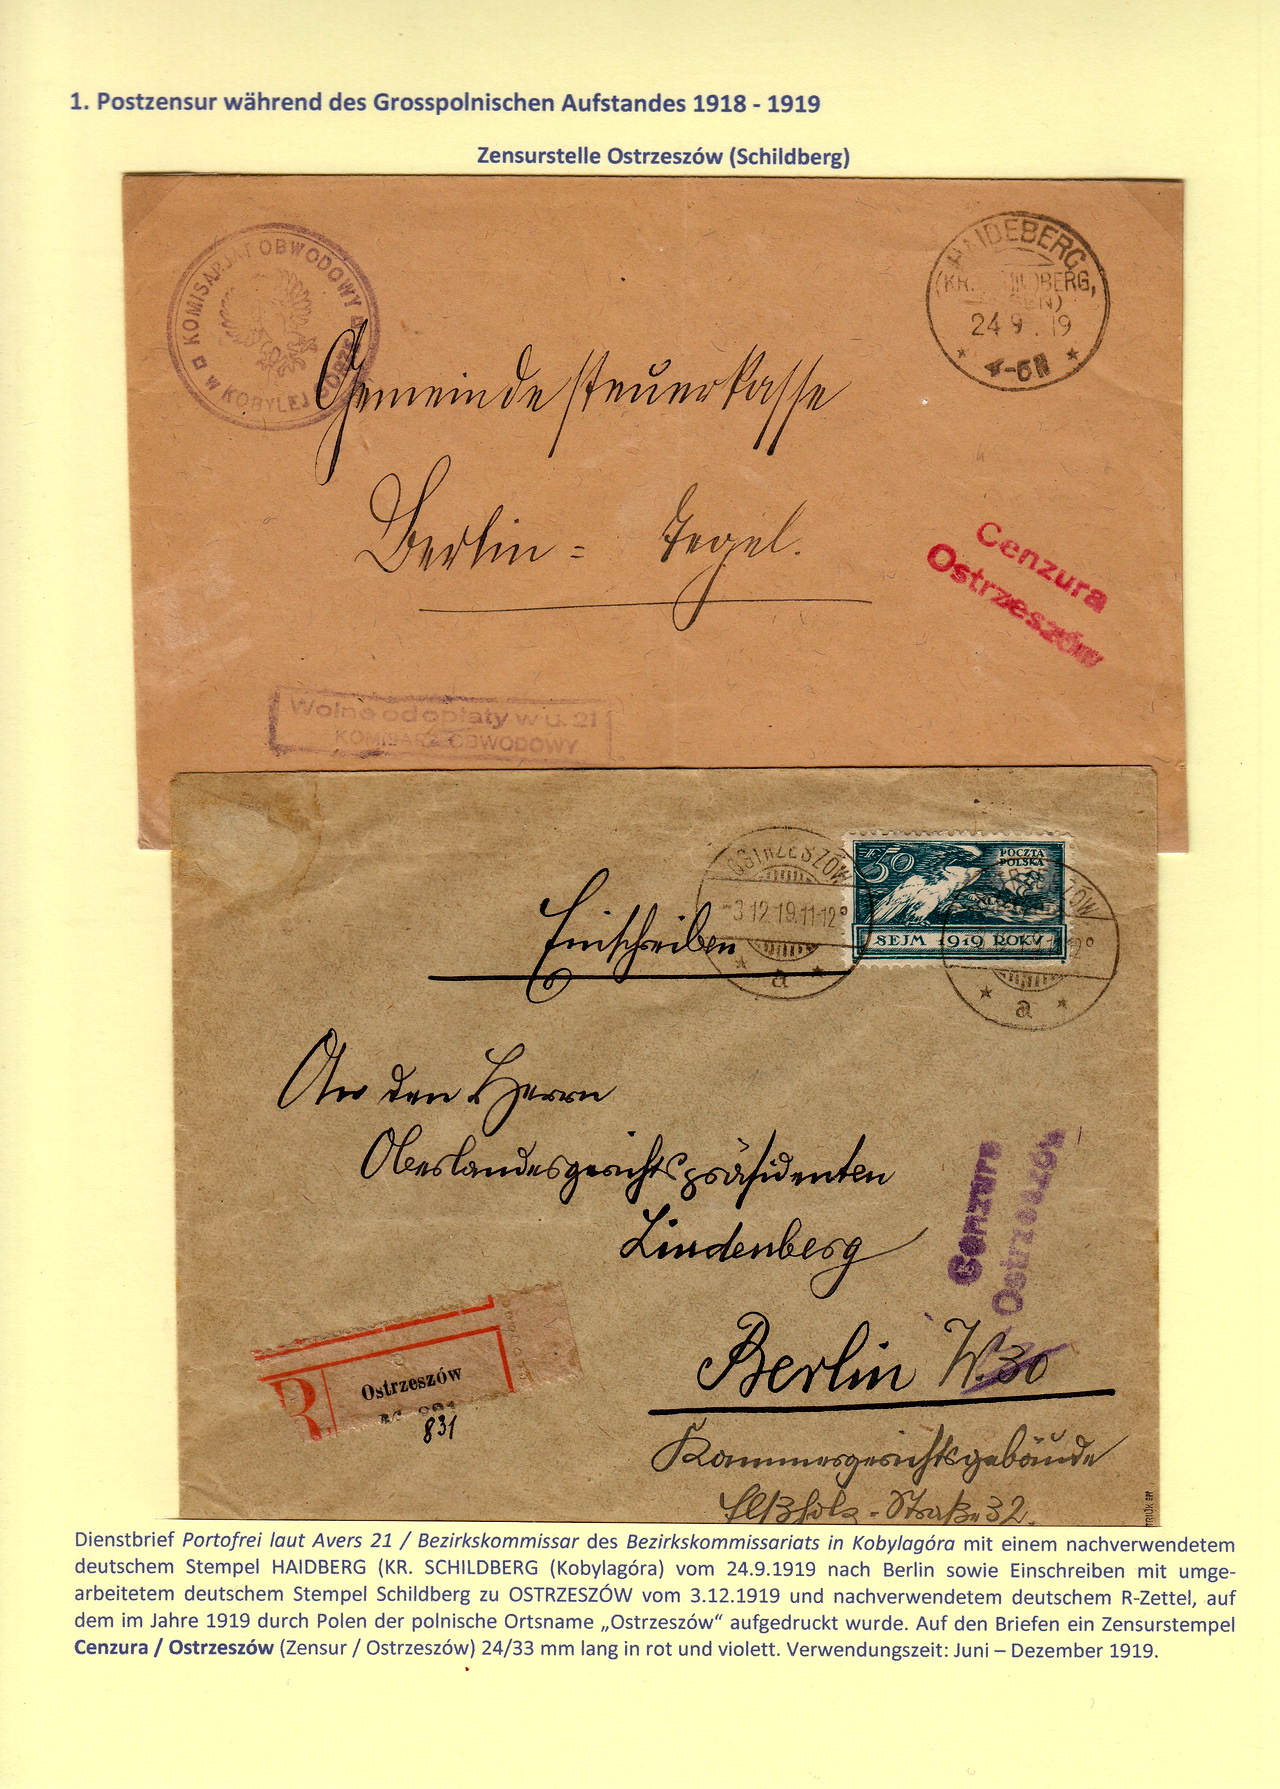 1. Postzensur während des Grosspolnischen Aufstandes 1918 - 1919
Zensurstelle Ostrzeszów (Schildberg)
KOMISARJAT OBWODOWY
W KOBYLEJ GÓRZE
HAIDEBERG
(KR. SCHILDBERG,
24 9 . 19
Gemeindesteuerkasse
Berlin = Tegel.
Cenzura
Ostrzeszów
Wolne od opłaty w u. 21
KOMISARZ OBWODOWY
OSTRZESZÓW
-3.12.19.11-12⁰
a
30
POCZTA
POLSKA
SEJM 1919 ROKV
a
Einschreiben
An den Herrn
Oberlandesgerichtspräsidenten
Lindenberg
Cenzura
Ostrzeszów
Berlin W. 30
R
Ostrzeszów
831
Kammergerichtsgebäude
Elßholz-Straße 32.
Dienstbrief Portofrei laut Avers 21 / Bezirkskommissar des Bezirkskommissariats in Kobylagóra mit einem nachverwendetem
deutschem Stempel HAIDBERG (KR. SCHILDBERG (Kobylagóra) vom 24.9.1919 nach Berlin sowie Einschreiben mit umge-
arbeitetem deutschem Stempel Schildberg zu OSTRZESZÓW vom 3.12.1919 und nachverwendetem deutschem R-Zettel, auf
dem im Jahre 1919 durch Polen der polnische Ortsname „Ostrzeszów“ aufgedruckt wurde. Auf den Briefen ein Zensurstempel
Cenzura / Ostrzeszów (Zensur / Ostrzeszów) 24/33 mm lang in rot und violett. Verwendungszeit: Juni – Dezember 1919.